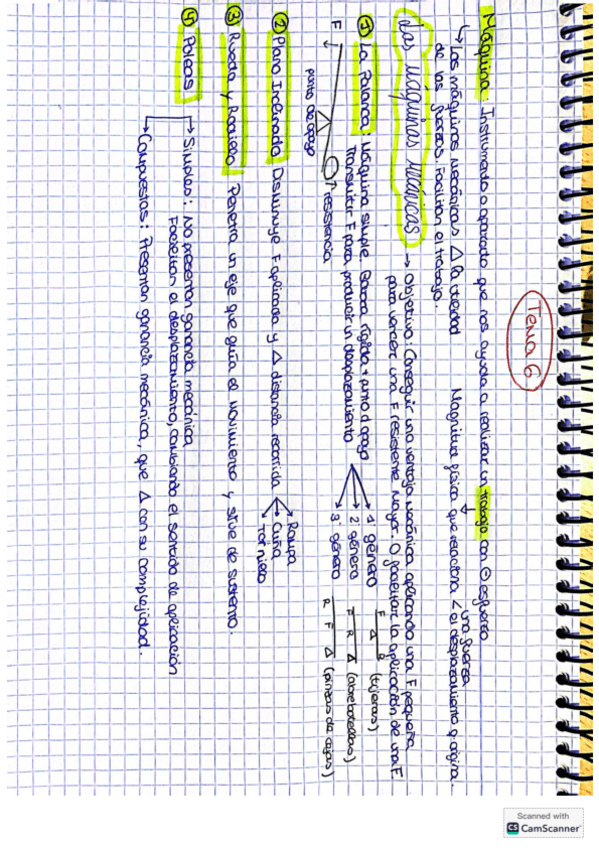 Tema 6
Máquina: Instrumento o aparato que nos ayuda a realizar un trabajo con ⊖ esfuerzo
↳ Las máquinas mecánicas Δ la
de las fuerzas. Facilitan el trabajo.
Magnitud física que relaciona < una fuerza
el desplazamiento q origina.
Las máquinas mecánicas → Objetivo: Conseguir una ventaja mecánica aplicando una F pequeña
para vencer una F resistente mayor. O facilitar la aplicación de una F
① La Palanca: Máquina simple. Barra rígida + punto d apoyo
Transmitir F para producir un desplazamiento
1º género F Δ R (tijeras)
2º género F R Δ (abrebotellas)
3º género R F Δ (pinzas de cejas)
F
punto de apoyo
resistencia
② Plano Inclinado Disminuye F aplicada y Δ distancia recorrida
Rampa
Cuña
Tornillo
③ Rueda y Rodillo Penetra un eje que guía el movimiento y sirve de sustento.
④ Poleas
→ Simples: No presentan ganancia mecánica
Facilitan el desplazamiento, cambiando el sentido de aplicación
→ Compuestas: Presentan ganancia mecánica, que Δ con su complejidad.
Scanned with
CS CamScanner